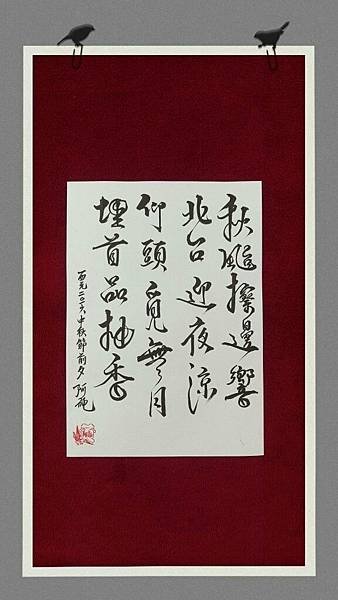 秋颱擦邊響
北台迎夜涼
仰頭覓無月
埋首品柚香
西元二〇一六中秋節前夕 阿